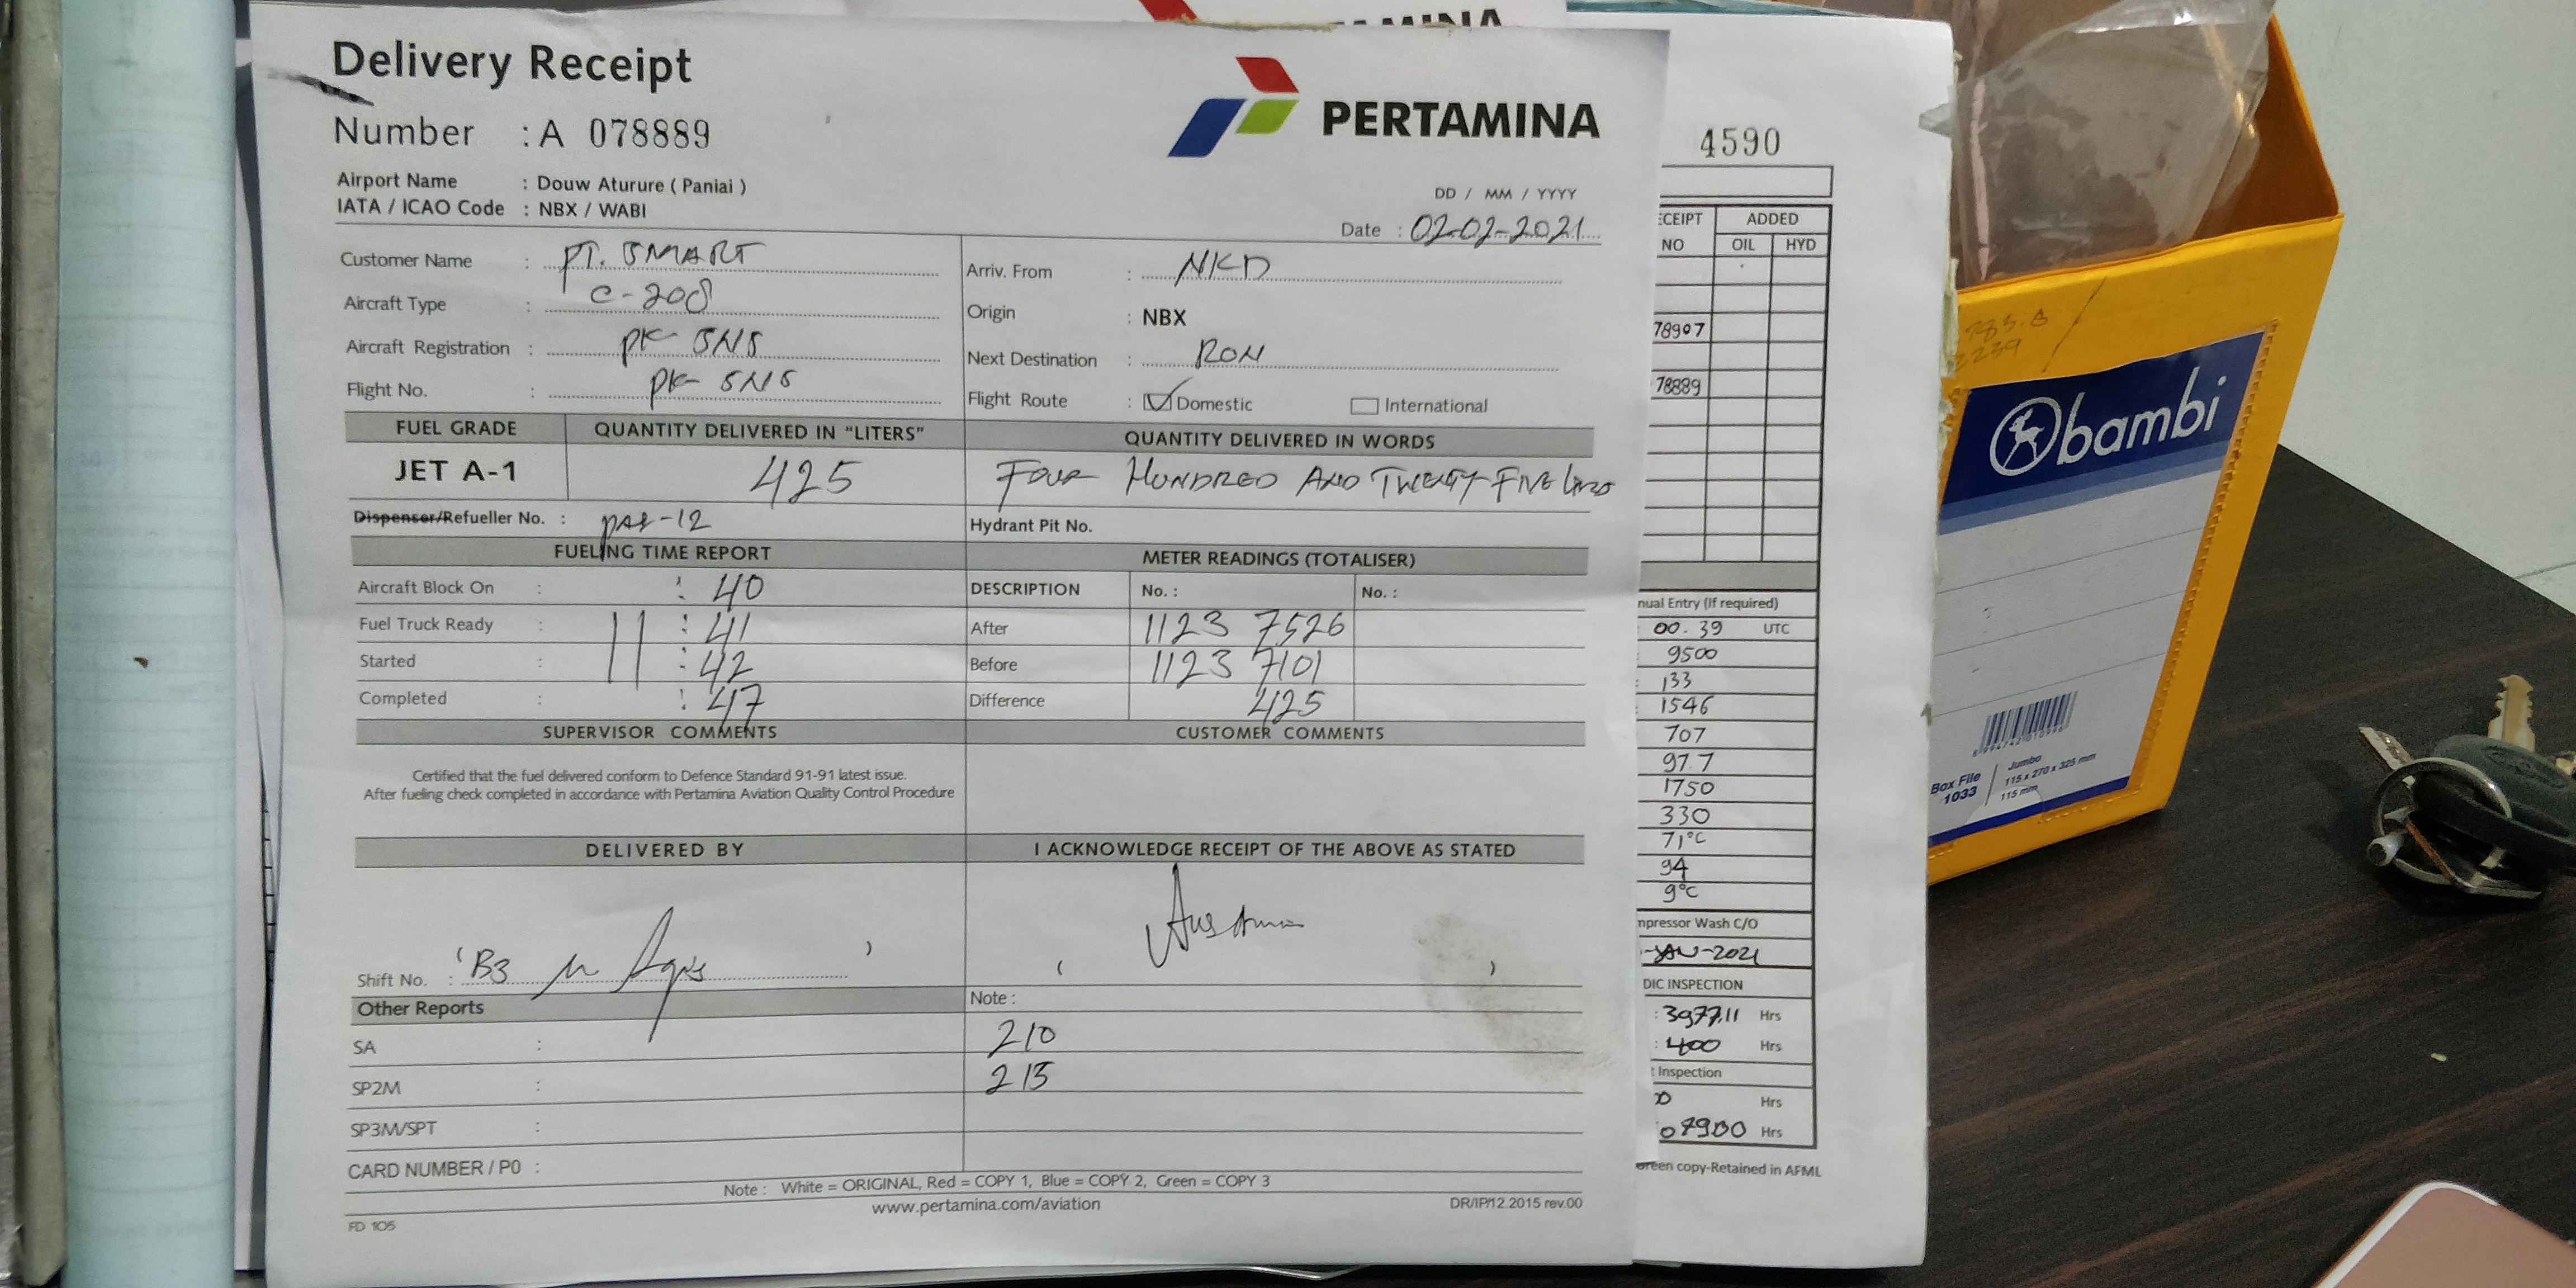 Delivery Receipt
Number : A 078889
PERTAMINA
Airport Name : Douw Aturure ( Paniai )
IATA / ICAO Code : NBX / WABI
DD / MM / YYYY
Date : 02-02-2021
Customer Name : PT. SMART
Aircraft Type : C-208
Aircraft Registration : PK-SNS
Flight No. : PK-SNS
Arriv. From : NKD
Origin : NBX
Next Destination : RON
Flight Route : Domestic International
FUEL GRADE QUANTITY DELIVERED IN "LITERS" QUANTITY DELIVERED IN WORDS
JET A-1 425 FOUR HUNDRED AND TWENTY FIVE
Dispenser/Refueller No. : PAF-12 Hydrant Pit No.
FUELING TIME REPORT METER READINGS (TOTALISER)
Aircraft Block On : : 40 DESCRIPTION No. : No. :
Fuel Truck Ready : : 41 After 1123 7526
Started : : 42 Before 1123 7101
Completed : : 47 Difference 425
SUPERVISOR COMMENTS CUSTOMER COMMENTS
Certified that the fuel delivered conform to Defence Standard 91-91 latest issue.
After fueling check completed in accordance with Pertamina Aviation Quality Control Procedure
DELIVERED BY I ACKNOWLEDGE RECEIPT OF THE ABOVE AS STATED
Shift No. : B3
Other Reports Note :
SA : 210
SP2M : 215
SP3M/SPT :
CARD NUMBER / P0 :
Note : White = ORIGINAL, Red = COPY 1, Blue = COPY 2, Green = COPY 3
www.pertamina.com/aviation
FD 105 DR/IP/12.2015 rev.00
4590
ECEIPT ADDED
NO OIL HYD
78907
78889
nual Entry (If required)
00.39 UTC
9500
133
1546
707
97.7
1750
330
71°C
94
9°C
mpressor Wash C/O
-JAN-2021
DIC INSPECTION
: 3977.11 Hrs
: 400 Hrs
t Inspection
Hrs
07900 Hrs
Green copy-Retained in AFML
bambi
Box File
1033
Jumbo
115 x 270 x 325 mm
115 mm